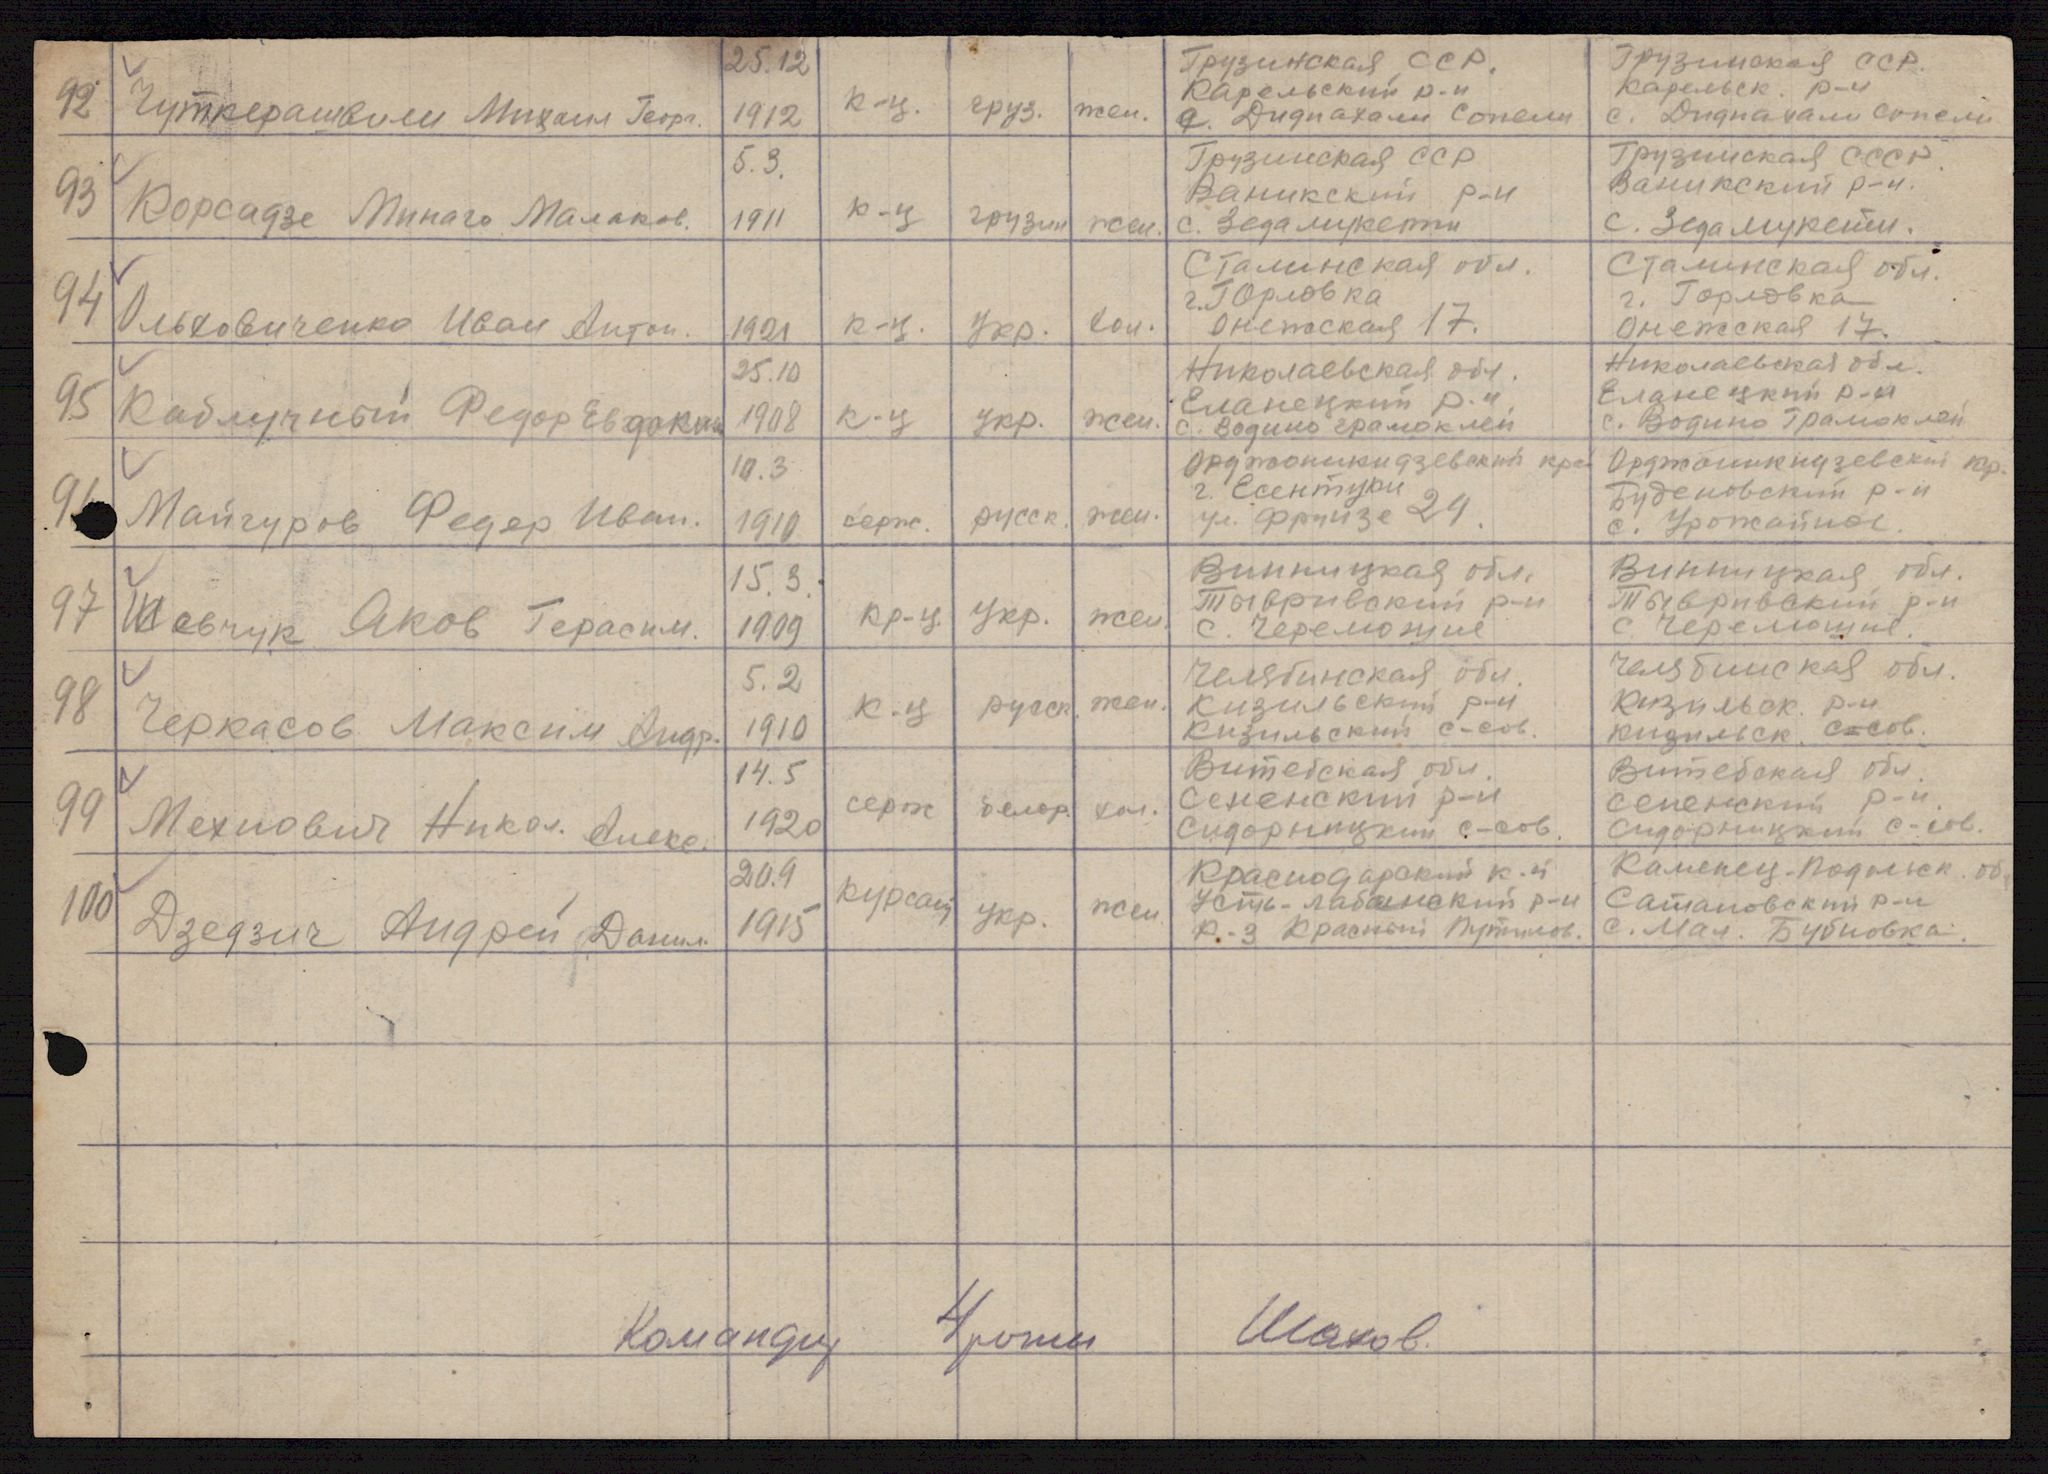 92 Чуткерашвили Михаил Георг. 25.12 1912 к-ц. груз. жен. Грузинская ССР. Грузинская ССР.
Карельский р-н Карельск. р-н
с. Дидпахали Сопели с. Дидпахали Сопели
93 Корсадзе Минаго Малаков. 5.3. 1911 к-ц грузин жен. Грузинская ССР Грузинская СССР.
Ваникский р-н Ваникский р-н.
с. Зедамукети с. Зедамукети.
94 Ольховиченко Иван Антон. 1921 к-ц. укр. хол. Сталинская обл. Сталинская обл.
г. Горловка г. Горловка
Онежская 17. Онежская 17.
95 Каблучный Федор Евдоким 25.10 1908 к-ц укр. жен. Николаевская обл. Николаевская обл.
Еланецкий р-н Еланецкий р-н
с. Водино Грамоклей с. Водино Грамоклей
96 Майгуров Федер Иван. 10.3 1910 серж. русск. жен. Орджоникидзевский край Орджоникидзевский кр.
г. Есентуки Буденовский р-н
ул. Фрунзе 29. с. Урожайное.
97 Шевчук Яков Герасим. 15.3. 1909 кр-ц укр. жен. Винницкая обл. Винницкая обл.
Тывривский р-н Тывривский р-н
с. Черемошне с. Черемошне.
98 Черкасов Максим Андр. 5.2 1910 к-ц русск. жен. Челябинская обл. Челябинская обл.
Кизильский р-н Кизильск. р-н
Кизильский с-сов. Кизильск. с-сов.
99 Мехнович Никол. Алекс. 14.5 1920 серж белор. хол. Витебская обл. Витебская обл.
Сененский р-н Сененский р-н.
Сидорницкий с-сов. Сидорницкий с-сов.
100 Дзедзич Андрей Данил. 20.9 1915 курсант укр. жен. Краснодарский к-й Каменец-Подольск. об.
Усть-Лабинский р-н Сатановский р-н
к-з Красный Путилов. с. Мал. Бубновка.
Командир 4 роты Шахов.